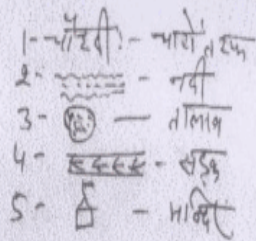 1- चौहदी :- चारों तरफ
2- - नदी
3- - तालाब
4- - सड़क
5- - मन्दिर